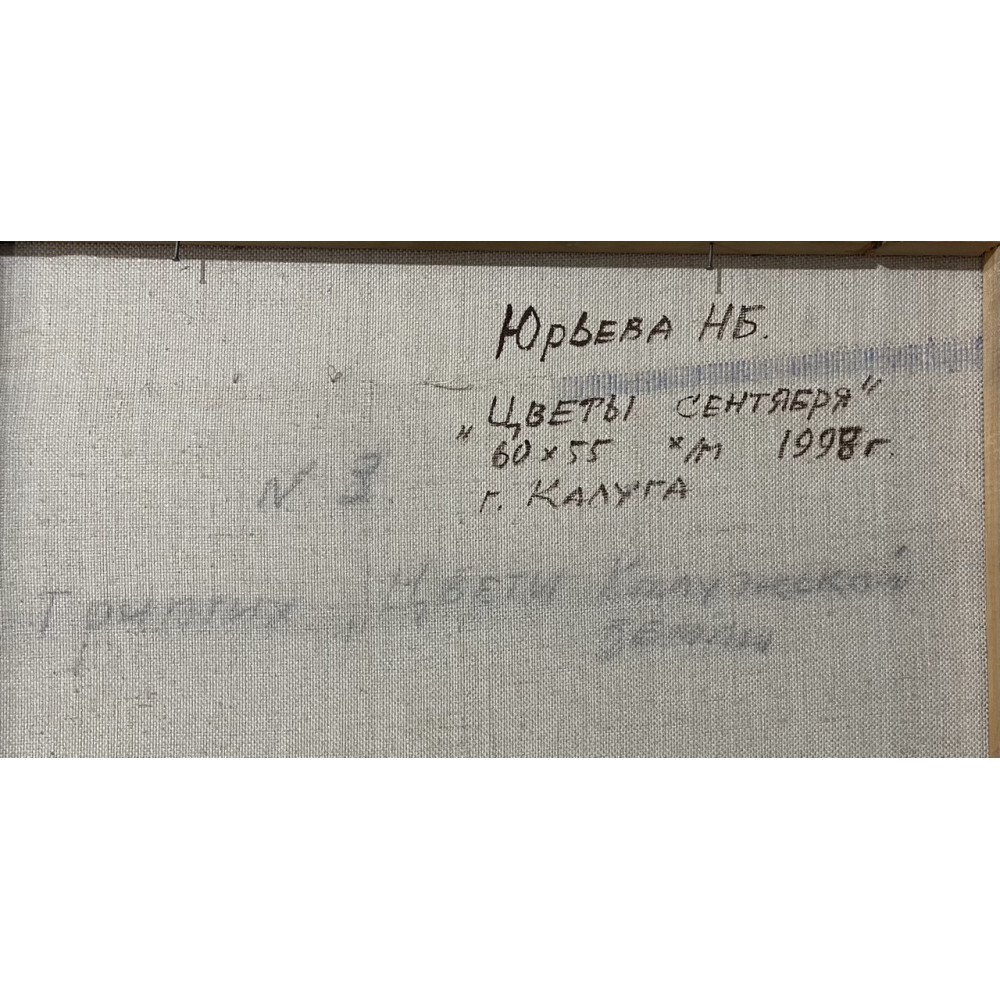 Юрьева НБ.
„Цветы сентября"
60×55 х/м 1998г.
г. Калуга
N 3.
Триптих „Цветы Калужской
земли